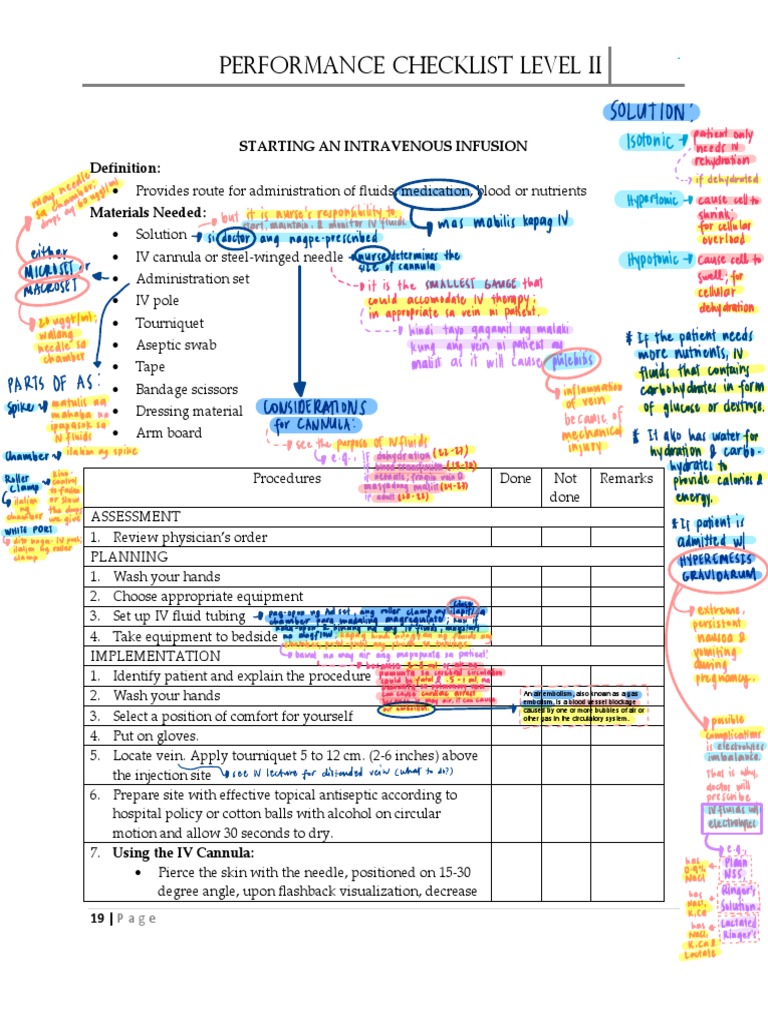 PERFORMANCE CHECKLIST LEVEL II
SOLUTION:
STARTING AN INTRAVENOUS INFUSION
Isotonic → patient only
needs IV
rehydration
if dehydrated
Hypertonic → cause cell to
shrink;
for cellular
overload
Hypotonic → cause cell to
swell; for
cellular
dehydration
* If the patient needs
more nutrients, IV
fluids that contains
carbohydrates in form
of glucose or dextrose.
* It also has water for
hydration & carbo-
hydrates to
provide calories &
energy.
* If patient is
admitted w/
HYPEREMESIS
GRAVIDARUM
extreme,
persistent
nausea &
vomiting
during
pregnancy.
possible
complications
is electrolytes
imbalance.
That is why,
doctor will
prescribe
IV fluids w/
electrolytes
e.g.,
has
0.9%
NaCl
Plain
NSS
has
NaCl,
K, Ca
Ringer's
Solution
has
NaCl,
K, Ca &
Lactate
Lactated
Ringer's
Definition:
• Provides route for administration of fluids, medication, blood or nutrients
mas mabilis kapag IV
Materials Needed:
but it is nurse's responsibility to
start, maintain, & monitor IV fluids
• Solution → si doctor ang nagpe-prescribed
• IV cannula or steel-winged needle → nurse determines the
size of cannula
it is the SMALLEST GAUGE that
could accomodate IV therapy;
in appropriate sa vein ni patient.
hindi tayo gagamit ng malaki
kung ang vein ni patient ay
maliit as it will cause phlebibs
inflammation
of vein
because of
mechanical
injury
• Administration set
• IV pole
• Tourniquet
• Aseptic swab
• Tape
• Bandage scissors
• Dressing material
• Arm board
may needle
sa chamber,
drops ay 60 uggt/ml
either
MICROSET or
MACROSET
20 uggt/ml;
walang
needle sa
chamber
PARTS OF AS:
Spike → matulis na
mahaba na
ipapasok sa
IV fluids
Chamber → ilalim ng spike
Roller
Clamp
ilalim
ng
chamber
WHITE PORT
clamp
CONSIDERATIONS
for CANNULA:
see the purpose of IV fluids
e.g.,
dehydration (22-27)
Procedures Done Not done Remarks
ASSESSMENT
1. Review physician's order
PLANNING
1. Wash your hands
2. Choose appropriate equipment
3. Set up IV fluid tubing
4. Take equipment to bedside
IMPLEMENTATION
1. Identify patient and explain the procedure
2. Wash your hands
An air embolism, also known as a gas
embolism, is a blood vessel blockage
caused by one or more bubbles of air or
other gas in the circulatory system.
3. Select a position of comfort for yourself
4. Put on gloves.
5. Locate vein. Apply tourniquet 5 to 12 cm. (2-6 inches) above
the injection site → see IV lecture for distended vein (what to do?)
6. Prepare site with effective topical antiseptic according to
hospital policy or cotton balls with alcohol on circular
motion and allow 30 seconds to dry.
7. Using the IV Cannula:
• Pierce the skin with the needle, positioned on 15-30
degree angle, upon flashback visualization, decrease
19 | Page